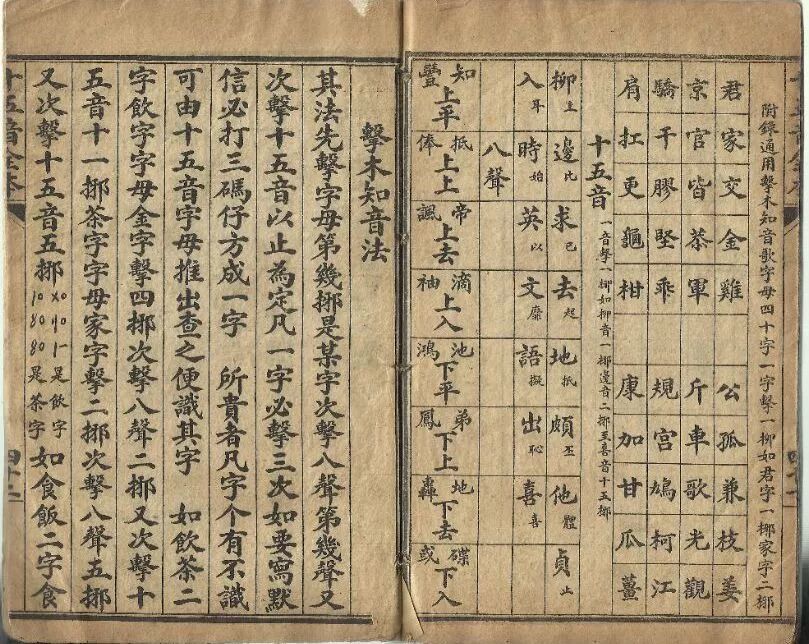 附錄通用擊木知音歌字母四十字一字擊一挪如君字一挪家字二挪
君家交金雞 公孤兼枝姜
京官皆恭軍 斤車歌光觀
驕干膠堅乖 規宮鳩柯江
肩扛更龜柑 康加甘瓜薑
十五音 一音擊一挪如柳音一挪邊音二挪至喜音十五挪
柳 邊比 求己 去起 地抵 頗丕 他體 貞止
入耳 時始 英以 文靡 語擬 出恥 喜喜
八聲
知豐上平 抵俸上上 帝諷上去 滴袖上入 池鴻下平 弟鳳下上 地轟下去 碟或下入
擊木知音法
其法先擊字母第幾挪是某字次擊八聲第幾聲又
次擊十五音以止為定凡一字必擊三次如要寫默
信必打三碼仔方成一字 所貴者凡字个有不識
可由十五音字母推出查之便識其字 如飲茶二
字飲字字母金字擊四挪次擊八聲二挪又次擊十
五音十一挪茶字字母家字擊二挪次擊八聲五挪
又次擊十五音五挪 是飲字 是茶字 如食飯二字食